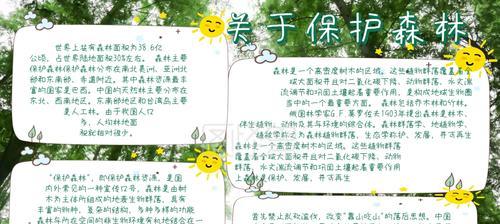 关于保护森林
世界上共有森林面积为38.6亿
公顷，占世界陆地面积30%左右。森林主要
保护森林保护森林分布在南北美洲、亚洲北
部和东南部、非洲附近。其中森林资源最丰
富的国家是巴西。中国的天然林主要分布在
东北、西南地区，东南部地区和台湾岛主要
是人工林。由于我国人口
多，人均林地面
积就相对很少。
森林是一个高密度树木的区域。这些植物群落覆盖着全
球大面积并且对二氧化碳下降、动物群落、
水文湍流调节和巩固土壤起着重要作用，是构成地球生物圈
当中的一个最重要方面。森林包括乔木林和竹林。
俄国林学家G.F.莫罗佐夫1903年提出森林是林木、
伴生植物、动物及其与环境的综合体。森林群落学、地植物学、
植被学称之为森林植物群落，生态学称护、发展，并节选再生
森林是一个高密度树木的区域。这些植物群落
覆盖着全球大面积并且对二氧化碳下降、动物
群落、水文湍流调节和巩固土壤起着重要作用
上森林是保护、发展，并节选再生
“保护森林”，即保护森林资源，是国
内外常见的一种宣传口号，森林是由树
木为主体所组成的地表生物群落，具有
丰富的物种，复杂的结构，多种多样的功能。
森林与所在空间的非生物环境有机地结合在一
首先禁止乱砍滥伐，改变“靠山吃山”的落后思想。中